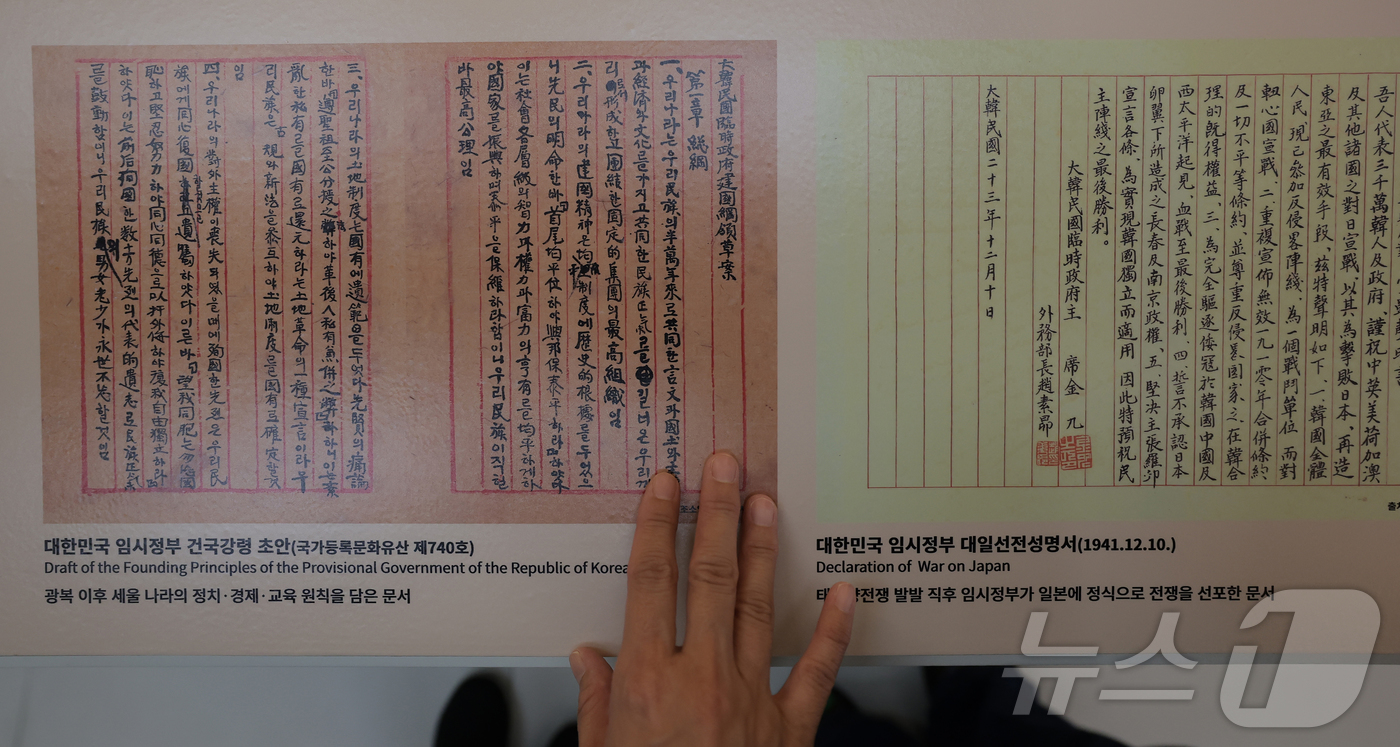 大韓民國臨時政府建國綱領草案
第一章 總綱
一、우리나라는 우리 民族의 半萬年來로 共同한 言文과 國土와
과 經濟와 文化를 가지고 共同한 民族正氣를 길너온 우리끼
리로서 形成하고 團結한 固定的 集團의 最高組織임
二、우리나라의 建國精神은 三均制度에 歷史的 根據를 두었으
니 先民의 明命한바 「首尾均平位하야 興邦保泰平하라」하얏다
이는 社會各層級의 智力과 權力과 富力의 享有를 均平하게하
야 國家를 振興하며 泰平을 保維하라함이니 우리民族이 직힐
바 最高公理임
三、우리나라의 土地制度는 國有에 遺範을 두엇다 先賢의 痛論
한바 「遵聖祖至公分授之法하야 革後人私有兼併之弊」하니 이는 紊
亂한 私有를 國有로 還元하라는 土地革命의 一種宣言이라 우
리民族은 古規와 新法을 參互하야 土地制度를 國有로 確定할것
임
四、우리나라의 對外主權이 喪失되엿을때에 殉國한 先烈은 우리民
族에게 同心復國할것을 遺囑하얏다 이른바 「望我同胞는 勿忘國
恥하고 堅忍努力하야 同心同德으로 以捍外侮하야 復我自由獨立하라」
하얏다 이는 前后殉國한 數十萬先烈의 代表的遺志로 民族正氣
를 鼓動함이니 우리民族의 男女老少가 永世不忘할것임
대한민국 임시정부 건국강령 초안(국가등록문화유산 제740호)
Draft of the Founding Principles of the Provisional Government of the Republic of Korea
광복 이후 세울 나라의 정치·경제·교육 원칙을 담은 문서
吾人代表三千萬韓人及政府、謹祝中英美荷加澳
及其他諸國之對日宣戰、以其為擊敗日本、再造
東亞之最有效手段、茲特聲明如下、一、韓國全體
人民、現已參加反侵畧陣綫、為一個戰鬥單位、而對
軸心國宣戰、二、重複宣佈無效一九一零年合併條約
及一切不平等條約、並尊重反侵畧國家、之在韓合
理的既得權益、三、為完全驅逐倭冦於韓國中國及
西太平洋起見、血戰至最後勝利、四、誓不承認日本
卵翼下所造成之長春及南京政權、五、堅决主張羅邱
宣言各條、為實現韓國獨立而適用、因此特預祝民
主陣綫之最後勝利。
大韓民國臨時政府主 席金 九
外務部長趙素昻
大韓民國二十三年十二月十日
대한민국 임시정부 대일선전성명서(1941.12.10.)
Declaration of War on Japan
전쟁 발발 직후 임시정부가 일본에 정식으로 전쟁을 선포한 문서
뉴스1